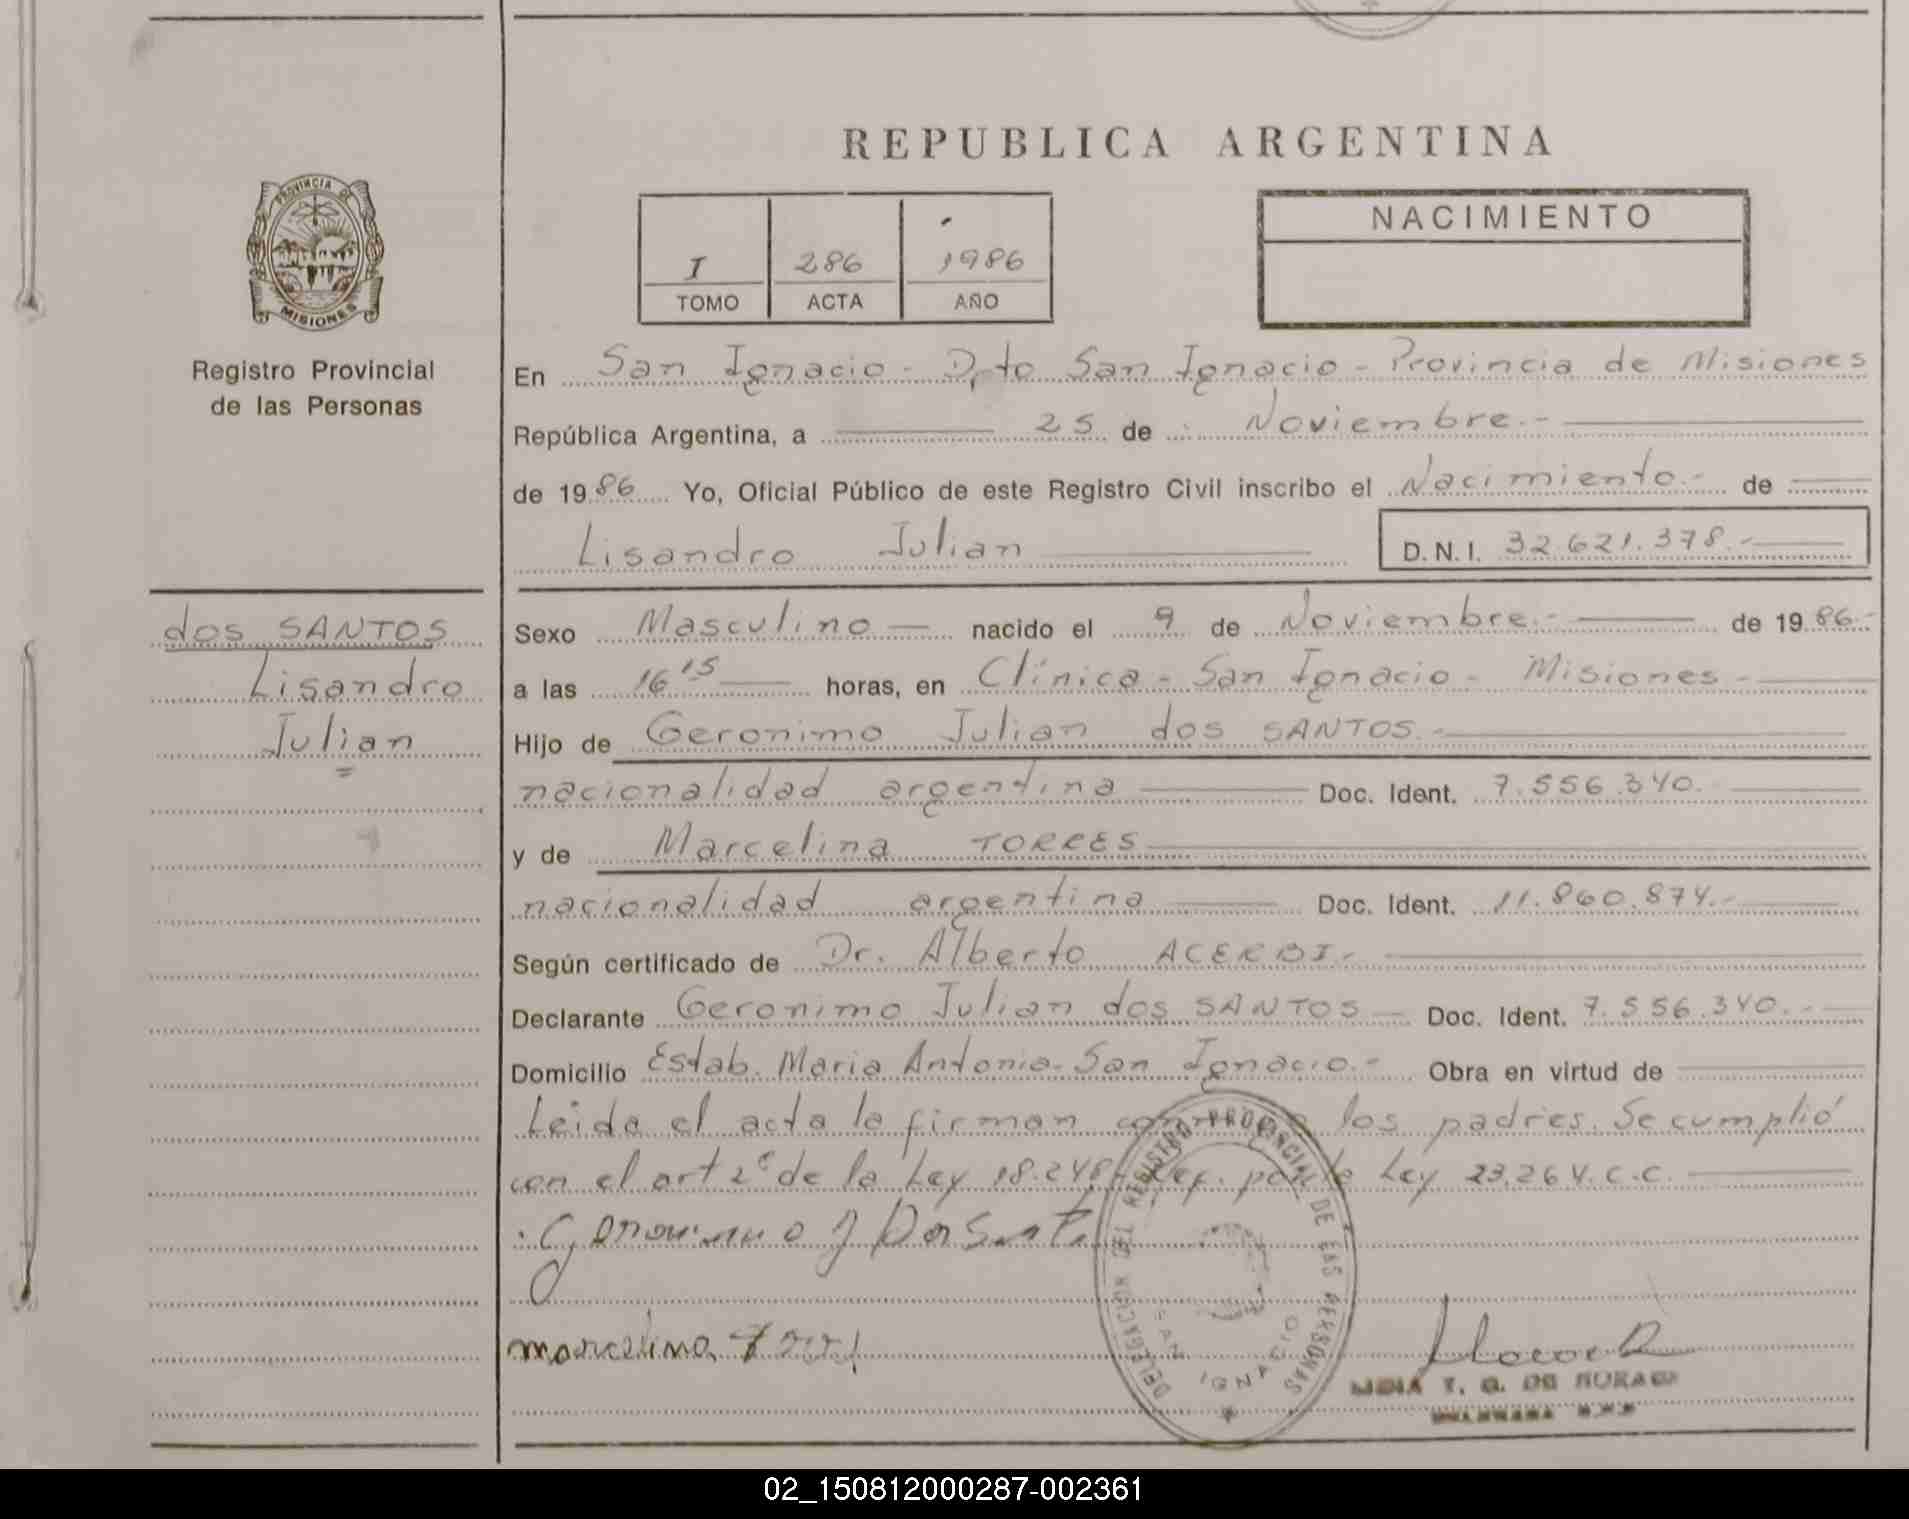 REPUBLICA ARGENTINA
PROVINCIA DE MISIONES
Registro Provincial
de las Personas
I 286 1986
TOMO ACTA AÑO
NACIMIENTO
En San Ignacio - Dpto San Ignacio - Provincia de Misiones
República Argentina, a 25 de Noviembre.-
de 1986 Yo, Oficial Público de este Registro Civil inscribo el Nacimiento.- de
Lisandro Julian D.N.I. 32.621.378.-
dos SANTOS
Lisandro
Julian
Sexo Masculino nacido el 9 de Noviembre.- de 1986.-
a las 16 15 horas, en Clínica - San Ignacio - Misiones -
Hijo de Geronimo Julian dos SANTOS.-
nacionalidad argentina Doc. Ident. 7.556.340.
y de Marcelina TORRES
nacionalidad argentina Doc. Ident. 11.860.874.-
Según certificado de Dr. Alberto ACERBI.-
Declarante Geronimo Julian dos SANTOS Doc. Ident. 7.556.340.-
Domicilio Estab. Maria Antonia - San Ignacio.- Obra en virtud de
Leida el acta la firman los padres. Se cumplió
con el art 2º de la Ley 18.248 por la Ley 23.264.C.C.
Geronimo J Dos Santos
marcelina
DELEGACION DEL REGISTRO PROVINCIAL DE LAS PERSONAS
SAN IGNACIO
T. G. DE
02_150812000287-002361